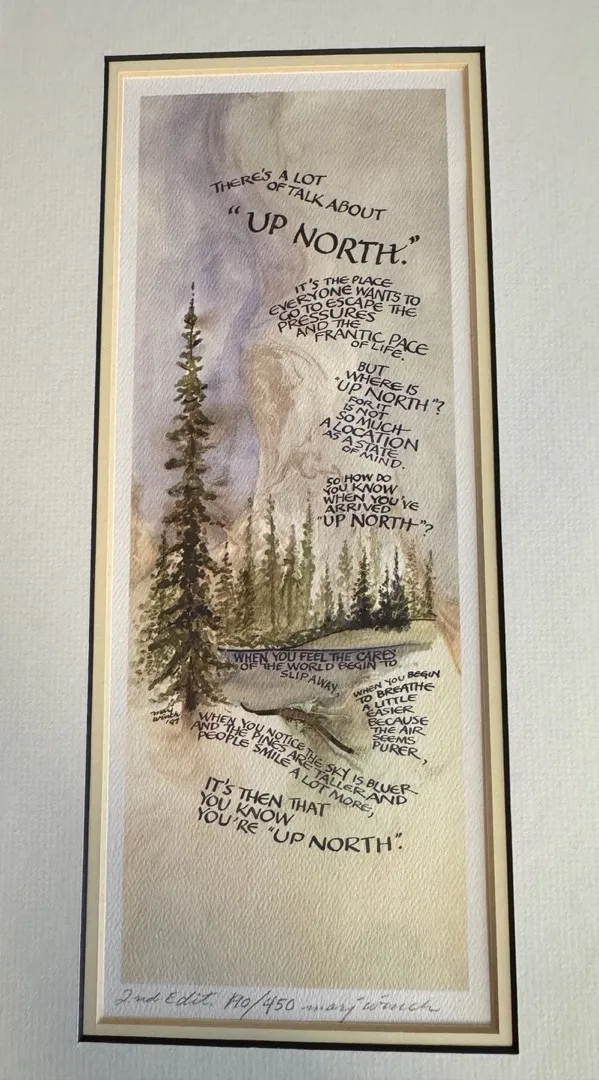 THERE'S A LOT
OF TALK ABOUT
"UP NORTH."
IT'S THE PLACE
EVERYONE WANTS TO
GO TO ESCAPE THE
PRESSURES
AND THE
FRANTIC PACE
OF LIFE.
BUT
WHERE IS
"UP NORTH"?
FOR IT
IS NOT
SO MUCH
A LOCATION
AS A STATE
OF MIND.
SO HOW DO
YOU KNOW
WHEN YOU'VE
ARRIVED
"UP NORTH"?
WHEN YOU FEEL THE CARES
OF THE WORLD BEGIN TO
SLIP AWAY,
WHEN YOU BEGIN
TO BREATHE
A LITTLE
EASIER
BECAUSE
THE AIR
SEEMS
PURER,
WHEN YOU NOTICE THE SKY IS BLUER
AND THE PINES ARE TALLER AND
PEOPLE SMILE
A LOT MORE,
IT'S THEN THAT
YOU KNOW
YOU'RE "UP NORTH".
2nd Edit. /450 marj